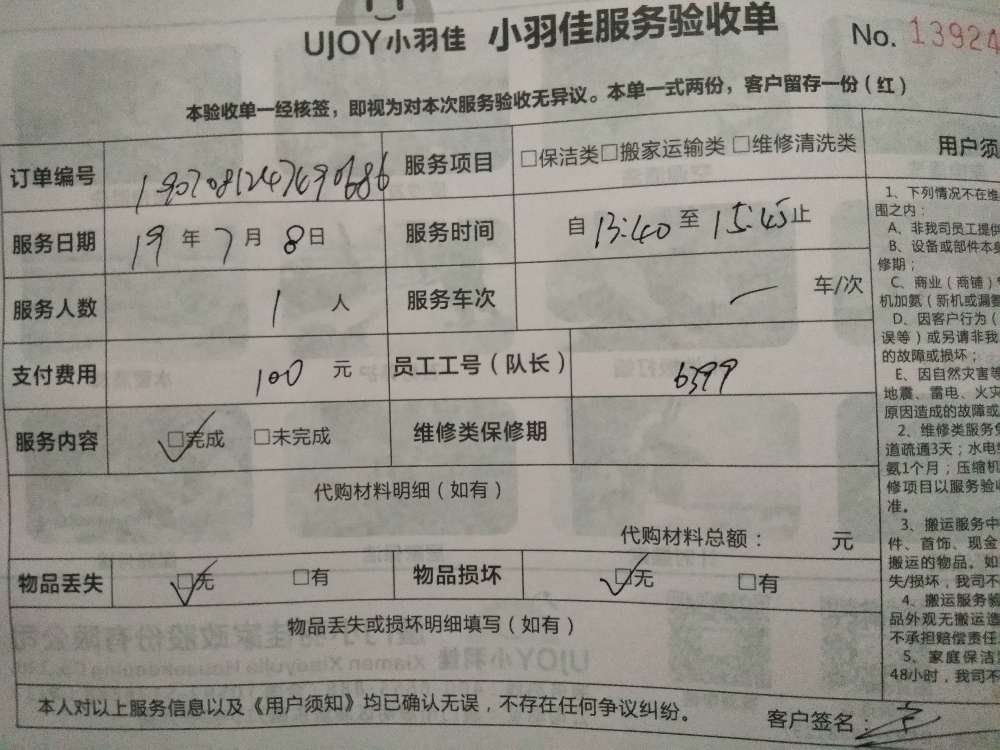 UJOY小羽佳 小羽佳服务验收单 No. 13924
本验收单一经核签，即视为对本次服务验收无异议。本单一式两份，客户留存一份（红）
订单编号 1907081247690686 服务项目 □保洁类□搬家运输类 □维修清洗类
服务日期 19 年 7 月 8 日 服务时间 自 13:40 至 15:45 止
服务人数 1 人 服务车次 一 车/次
支付费用 100 元 员工工号（队长） 6399
服务内容 ☑完成 □未完成 维修类保修期
代购材料明细（如有）
代购材料总额： 元
物品丢失 ☑无 □有 物品损坏 ☑无 □有
物品丢失或损坏明细填写（如有）
本人对以上服务信息以及《用户须知》均已确认无误，不存在任何争议纠纷。 客户签名：
用户须
1、下列情况不在维
围之内：
A、非我司员工提供
B、设备或部件本身
修期；
C、商业（商铺）
机加氨（新机或漏氨
D、因客户行为（
误等）或另请非我
的故障或损坏；
E、因自然灾害等
地震、雷电、火灾
原因造成的故障或
2、维修类服务免
道疏通3天；水电
氨1个月；压缩机
修项目以服务验收
准。
3、搬运服务中
件、首饰、现金
搬运的物品。如
失/损坏，我司不
4、搬运服务验
品外观无搬运造
不承担赔偿责任
5、家庭保洁
48小时，我司不